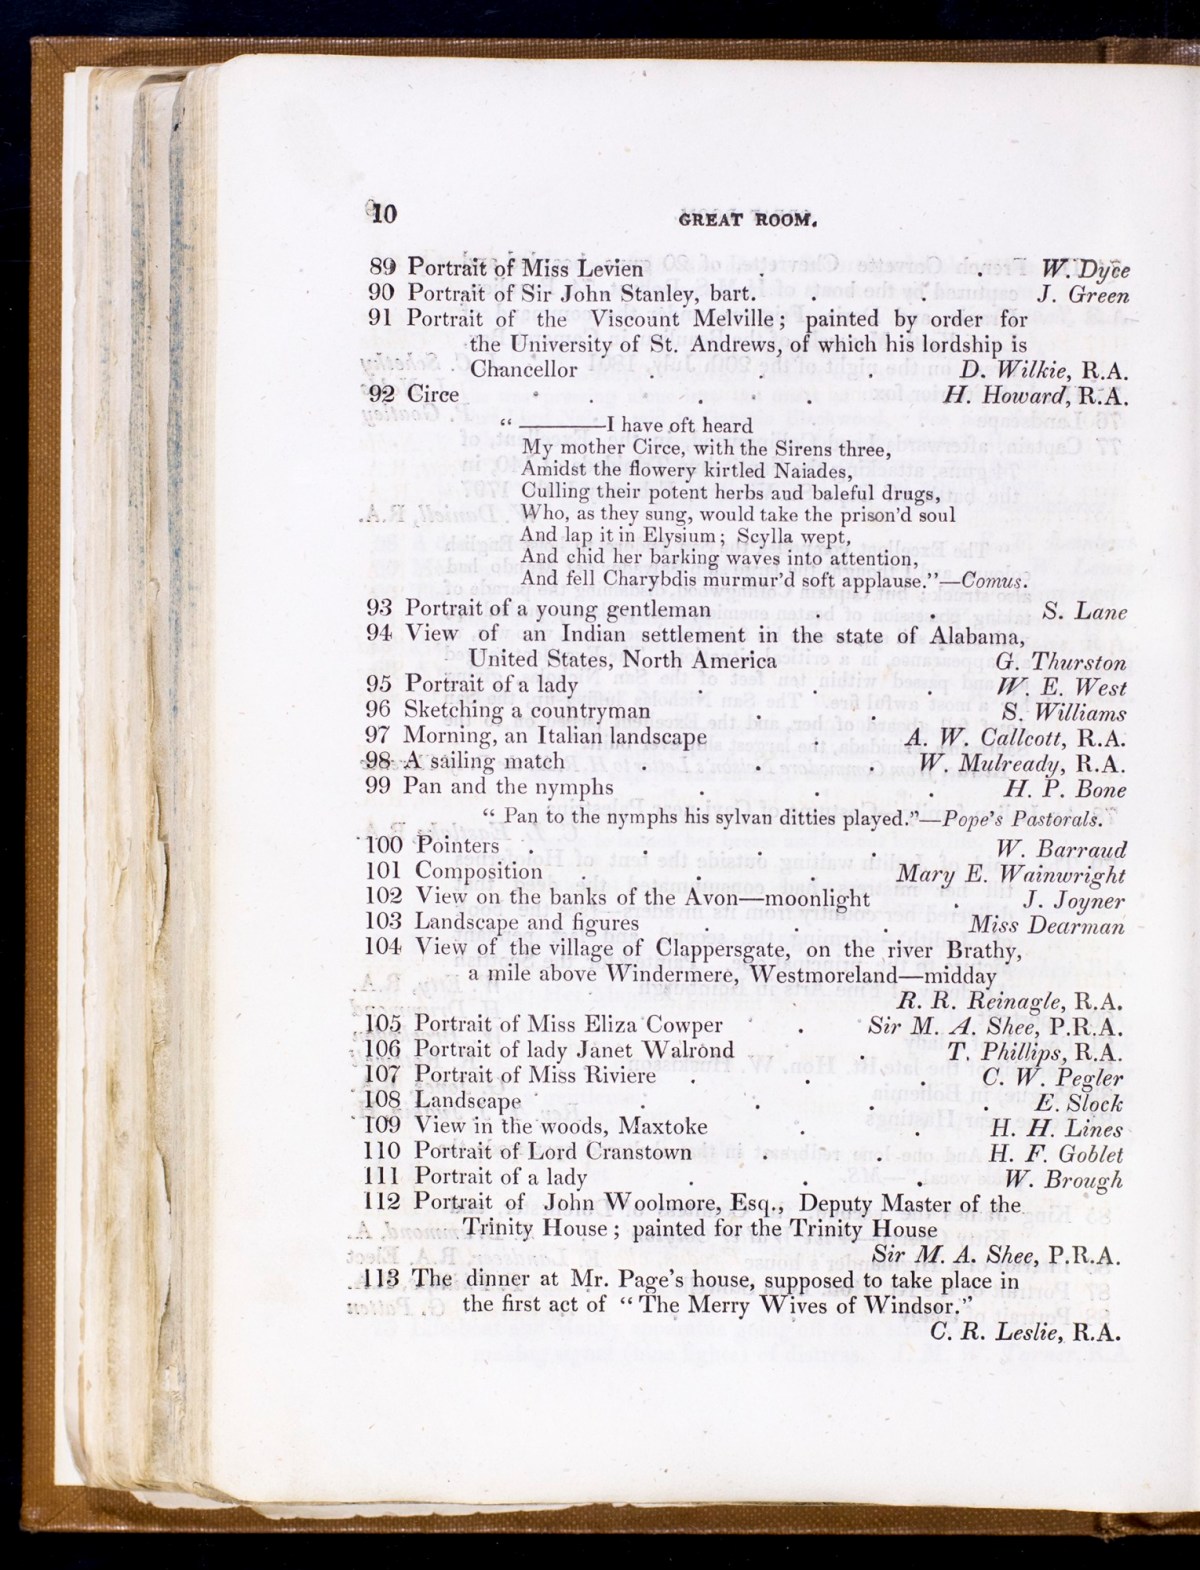 10
GREAT ROOM.
89 Portrait of Miss Levien . . . W. Dyce
90 Portrait of Sir John Stanley, bart. . . . J. Green
91 Portrait of the Viscount Melville; painted by order for
the University of St. Andrews, of which his lordship is
Chancellor . . . D. Wilkie, R.A.
92 Circe . . . . H. Howard, R.A.
“ ————I have oft heard
My mother Circe, with the Sirens three,
Amidst the flowery kirtled Naiades,
Culling their potent herbs and baleful drugs,
Who, as they sung, would take the prison'd soul
And lap it in Elysium; Scylla wept,
And chid her barking waves into attention,
And fell Charybdis murmur'd soft applause.”—Comus.
93 Portrait of a young gentleman . . S. Lane
94 View of an Indian settlement in the state of Alabama,
United States, North America . G. Thurston
95 Portrait of a lady . . . W. E. West
96 Sketching a countryman . . . S. Williams
97 Morning, an Italian landscape . A. W. Callcott, R.A.
98 A sailing match . . . W. Mulready, R.A.
99 Pan and the nymphs . . . H. P. Bone
“ Pan to the nymphs his sylvan ditties played.”—Pope's Pastorals.
100 Pointers . . . . W. Barraud
101 Composition . . . Mary E. Wainwright
102 View on the banks of the Avon—moonlight . J. Joyner
103 Landscape and figures . . . Miss Dearman
104 View of the village of Clappersgate, on the river Brathy,
a mile above Windermere, Westmoreland—midday
R. R. Reinagle, R.A.
105 Portrait of Miss Eliza Cowper . Sir M. A. Shee, P.R.A.
106 Portrait of lady Janet Walrond . T. Phillips, R.A.
107 Portrait of Miss Riviere . . . C. W. Pegler
108 Landscape . . . . E. Slock
109 View in the woods, Maxtoke . . H. H. Lines
110 Portrait of Lord Cranstown . . H. F. Goblet
111 Portrait of a lady . . . W. Brough
112 Portrait of John Woolmore, Esq., Deputy Master of the
Trinity House; painted for the Trinity House
Sir M. A. Shee, P.R.A.
113 The dinner at Mr. Page's house, supposed to take place in
the first act of “ The Merry Wives of Windsor.”
C. R. Leslie, R.A.